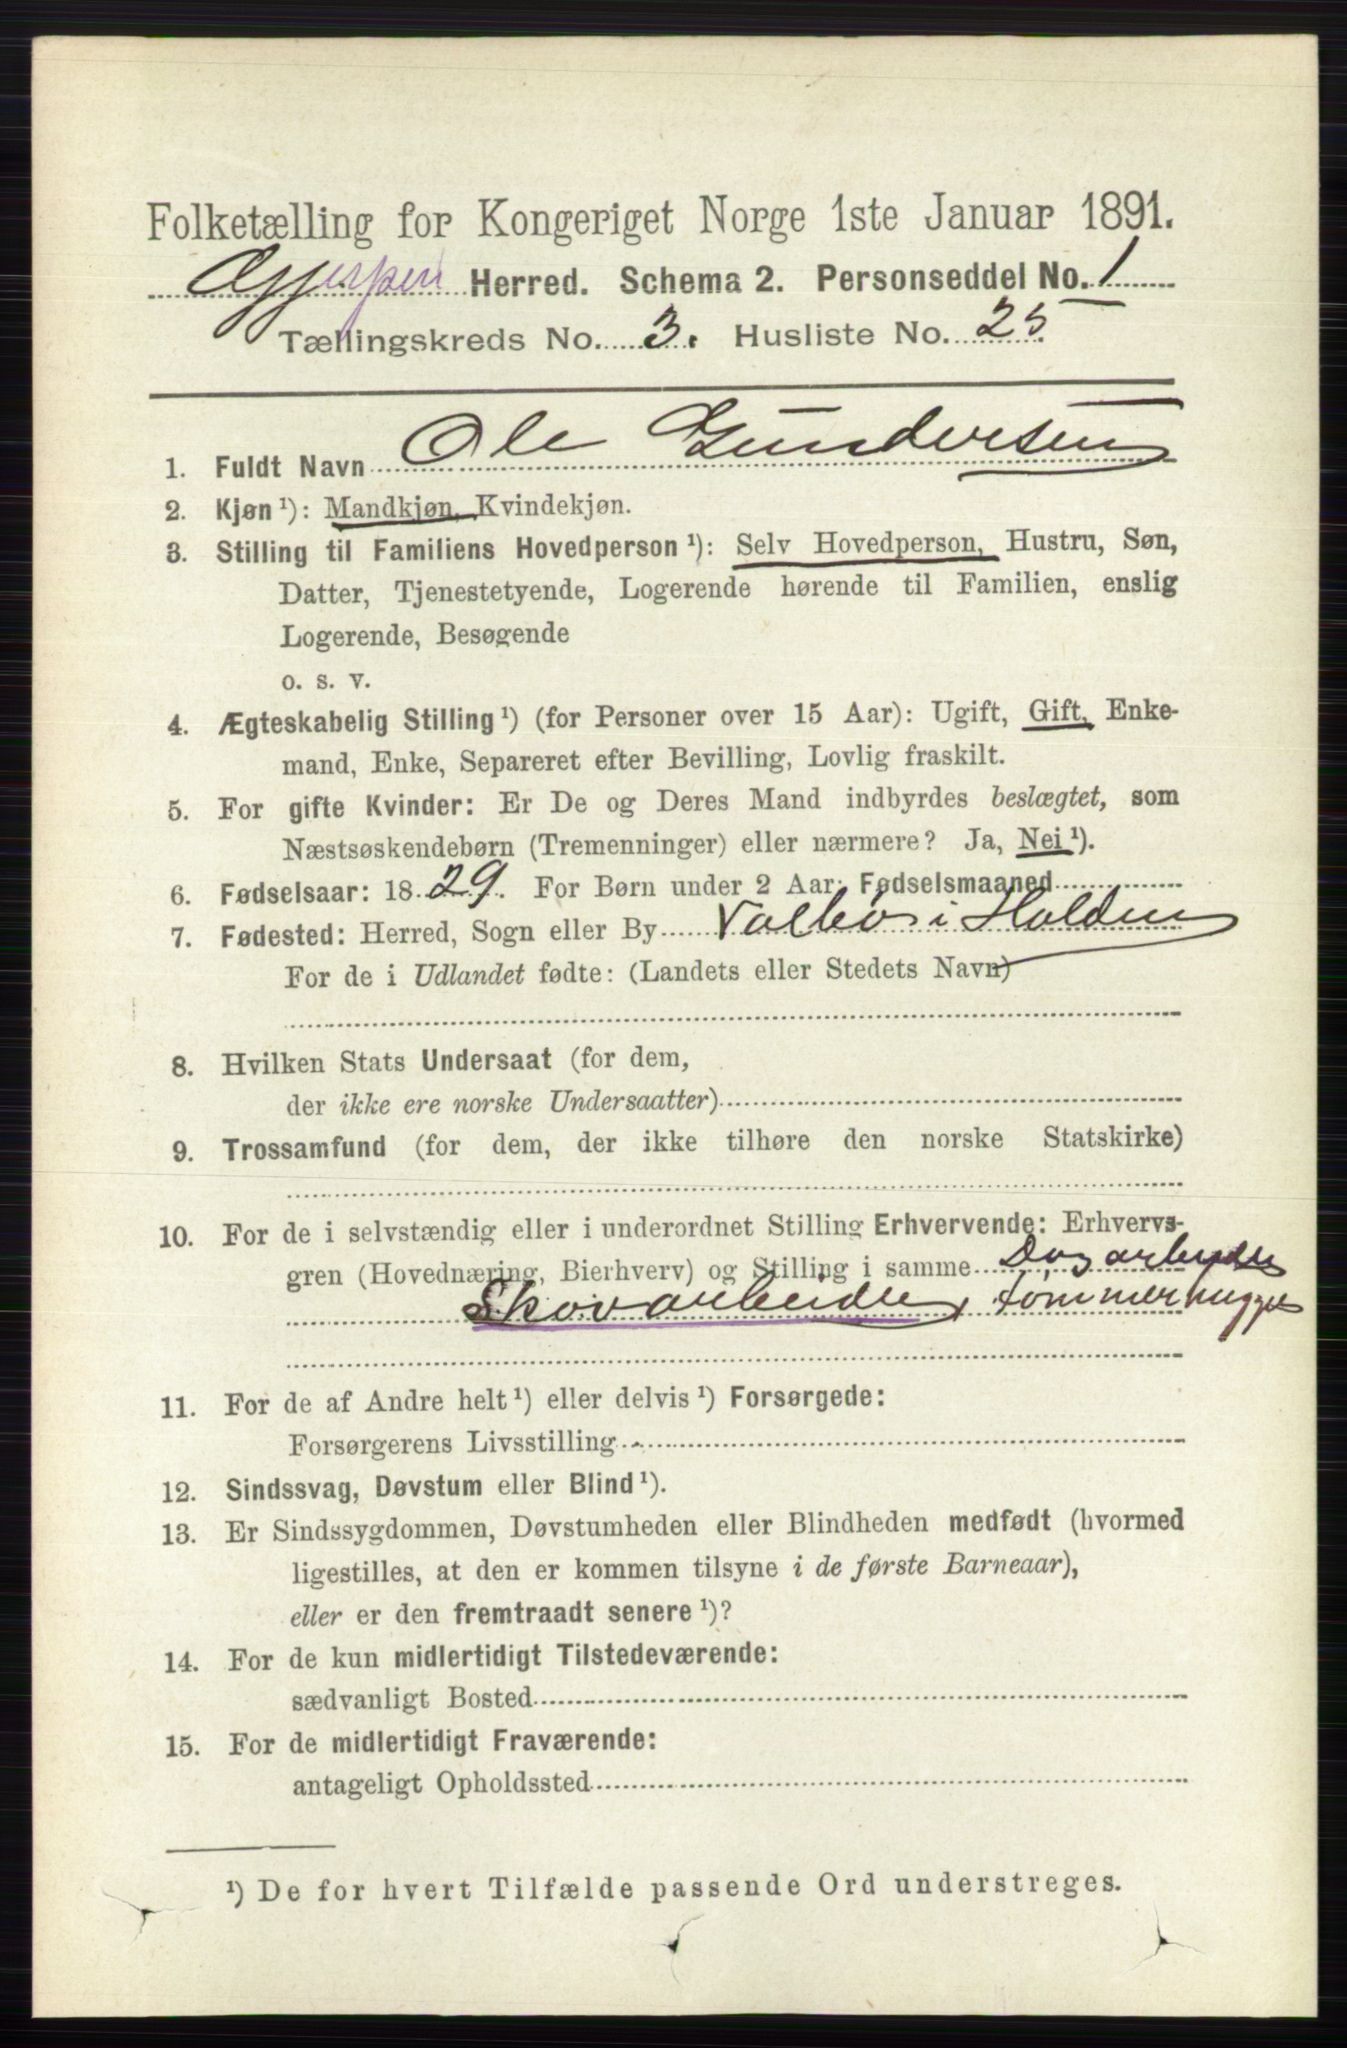 Folketælling for Kongeriget Norge 1ste Januar 1891.
Gjerpen Herred. Schema 2. Personseddel No. 1
Tællingskreds No. 3. Husliste No. 25
1. Fuldt Navn Ole Gundersen
2. Kjøn¹): Mandkjøn, Kvindekjøn.
3. Stilling til Familiens Hovedperson¹): Selv Hovedperson, Hustru, Søn,
Datter, Tjenestetyende, Logerende hørende til Familien, enslig
Logerende, Besøgende
o. s. v.
4. Ægteskabelig Stilling¹) (for Personer over 15 Aar): Ugift, Gift, Enke-
mand, Enke, Separeret efter Bevilling, Lovlig fraskilt.
5. For gifte Kvinder: Er De og Deres Mand indbyrdes beslægtet, som
Næstsøskendebørn (Tremenninger) eller nærmere? Ja, Nei¹).
6. Fødselsaar: 1829. For Børn under 2 Aar: Fødselsmaaned
7. Fødested: Herred, Sogn eller By Valbø i Holden
For de i Udlandet fødte: (Landets eller Stedets Navn)
8. Hvilken Stats Undersaat (for dem,
der ikke ere norske Undersaatter)
9. Trossamfund (for dem, der ikke tilhøre den norske Statskirke)
10. For de i selvstændig eller i underordnet Stilling Erhvervende: Erhvervs-
gren (Hovednæring, Bierhverv) og Stilling i samme Dagarbeider
Skovarbeider, tømmerhugger
11. For de af Andre helt¹) eller delvis¹) Forsørgede:
Forsørgerens Livsstilling
12. Sindssvag, Døvstum eller Blind¹).
13. Er Sindssygdommen, Døvstumheden eller Blindheden medfødt (hvormed
ligestilles, at den er kommen tilsyne i de første Barneaar),
eller er den fremtraadt senere¹)?
14. For de kun midlertidigt Tilstedeværende:
sædvanligt Bosted
15. For de midlertidigt Fraværende:
antageligt Opholdssted
¹) De for hvert Tilfælde passende Ord understreges.